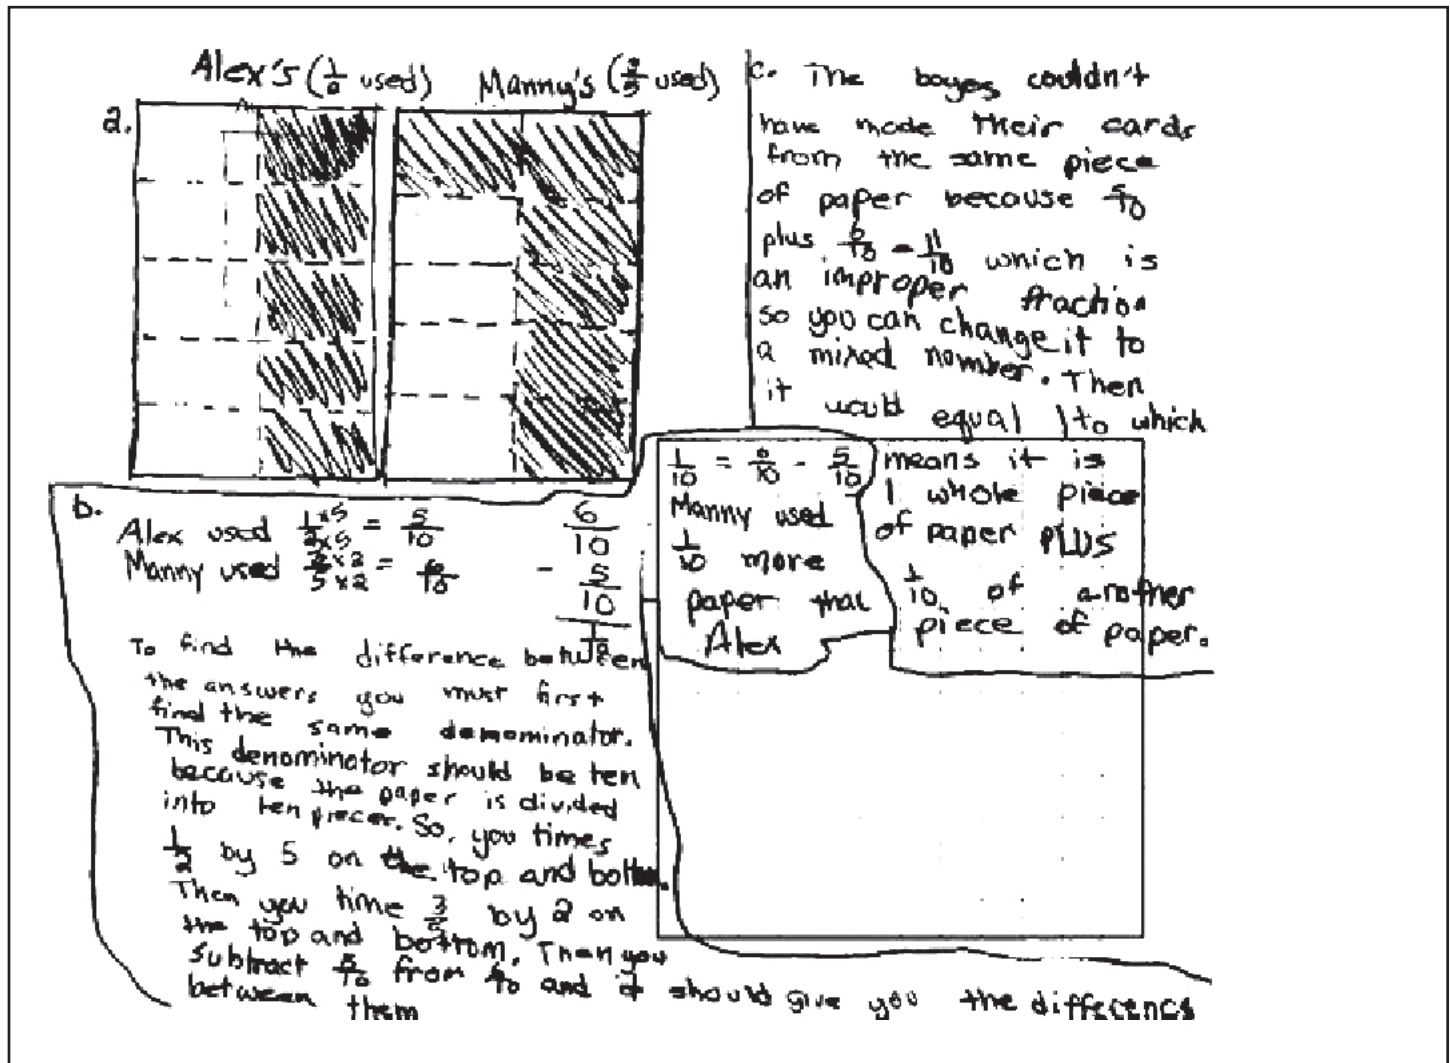 Alex's (1/2 used) Manny's (3/5 used)
a.
b.
Alex used 1/2 x5/x5 = 5/10
Manny used 3/5 x2/x2 = 6/10
6/10
- 5/10
1/10
To find the difference between
the answers you must first
find the same denominator.
This denominator should be ten
because the paper is divided
into ten pieces. So, you times
1/2 by 5 on the top and bottom.
Then you time 3/5 by 2 on
the top and bottom. Then you
subtract 5/10 from 6/10 and it should give you the difference
between them
1/10 = 6/10 - 5/10
Manny used
1/10 more
paper that
Alex
c. The boyes couldn't
have made their cards
from the same piece
of paper because 5/10
plus 6/10 = 11/10 which is
an improper fraction
so you can change it to
a mixed number. Then
it would equal 1 1/10 which
means it is
1 whole piece
of paper PLUS
1/10 of another
piece of paper.